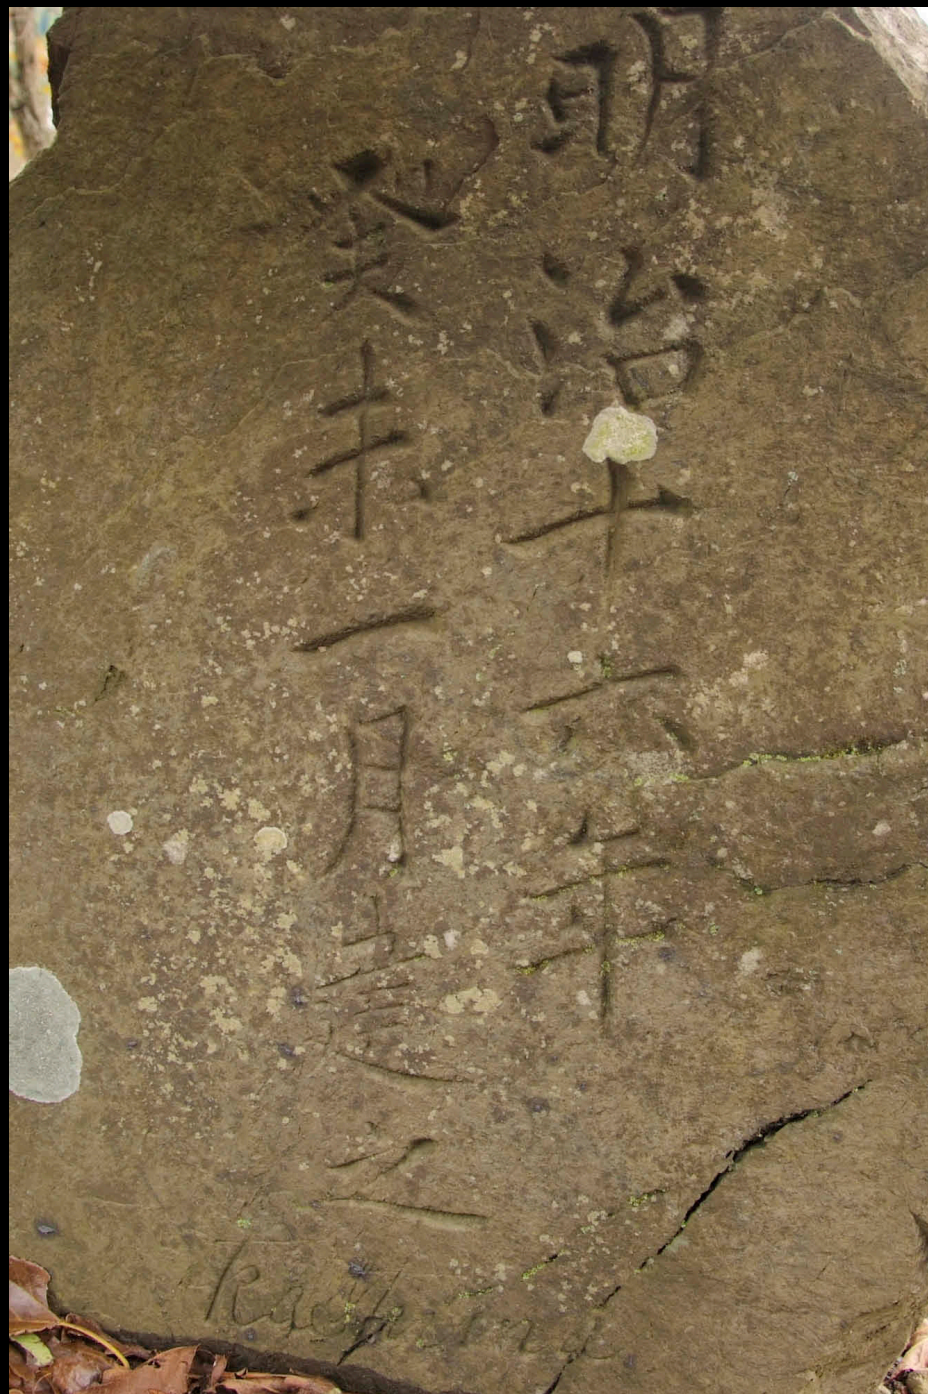 明治十六年
癸未一月建之